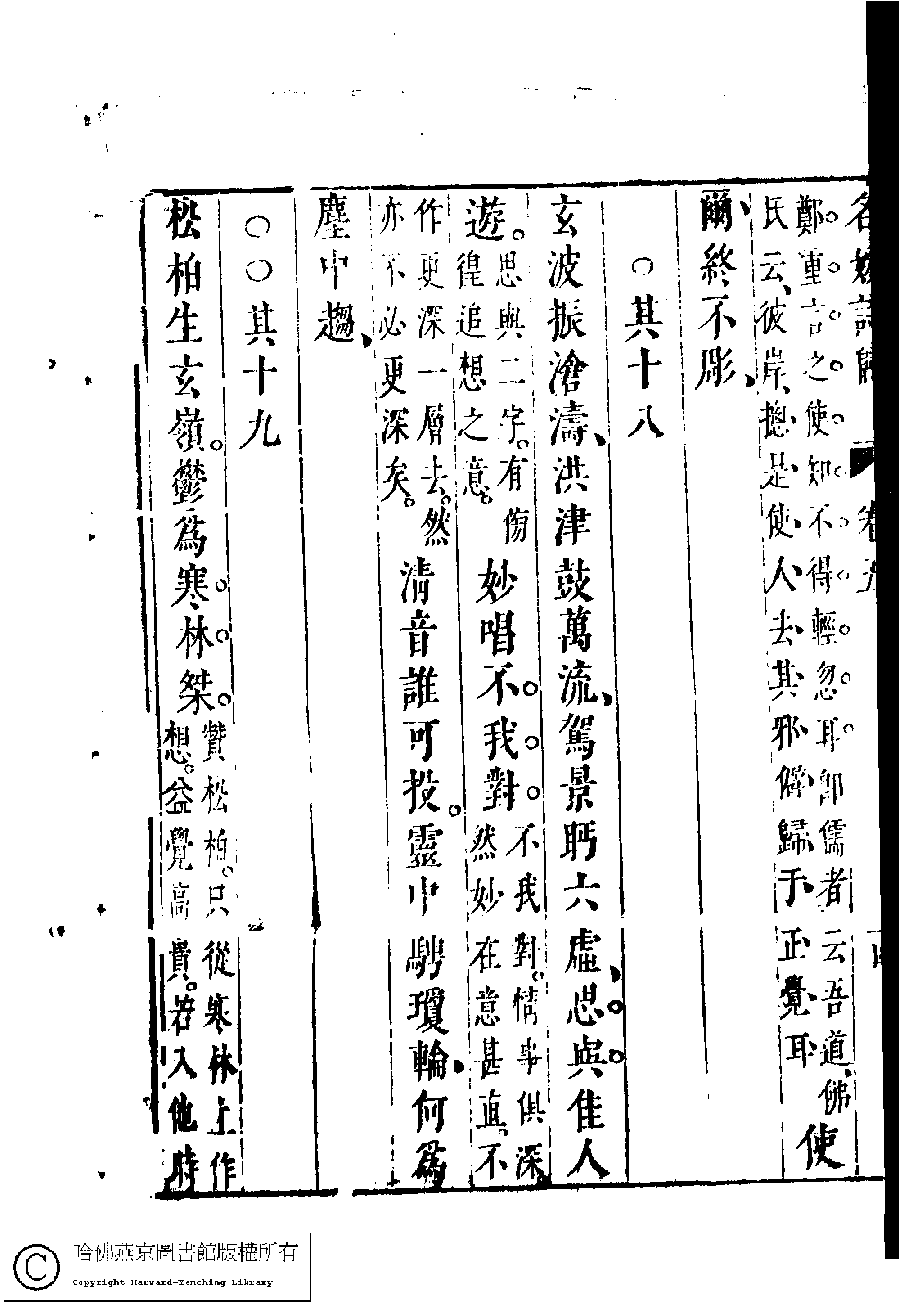 名媛詩歸 卷五
鄭重言之使知不得輕忽耳卽儒者云吾道佛
氏云彼岸揔是使人去其邪僻歸于正覺耳
使
爾終不彫
○其十八
玄波振滄濤洪津鼓萬流駕景眄六虛思與佳人
遊
思與二字有傷
徨追想之意
妙唱不我對
不我對情事俱深
然妙在意甚直不
作更深一層去然
亦不必更深矣
清音誰可投靈中騁瓊輪何爲
塵中趨
○○其十九
松柏生玄嶺鬱爲寒林桀
贊松柏只從寒林上作
想益覺高貴若入他時
哈佛燕京圖書館版權所有
Copyright Harvard-Yenching Library